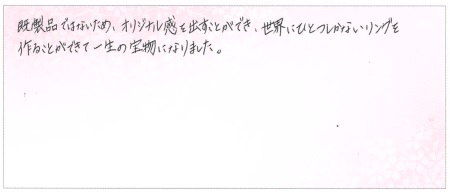 既製品ではないため、オリジナル感を出すことができ、世界にひとつしかないリングを
作ることができて一生の宝物になりました。